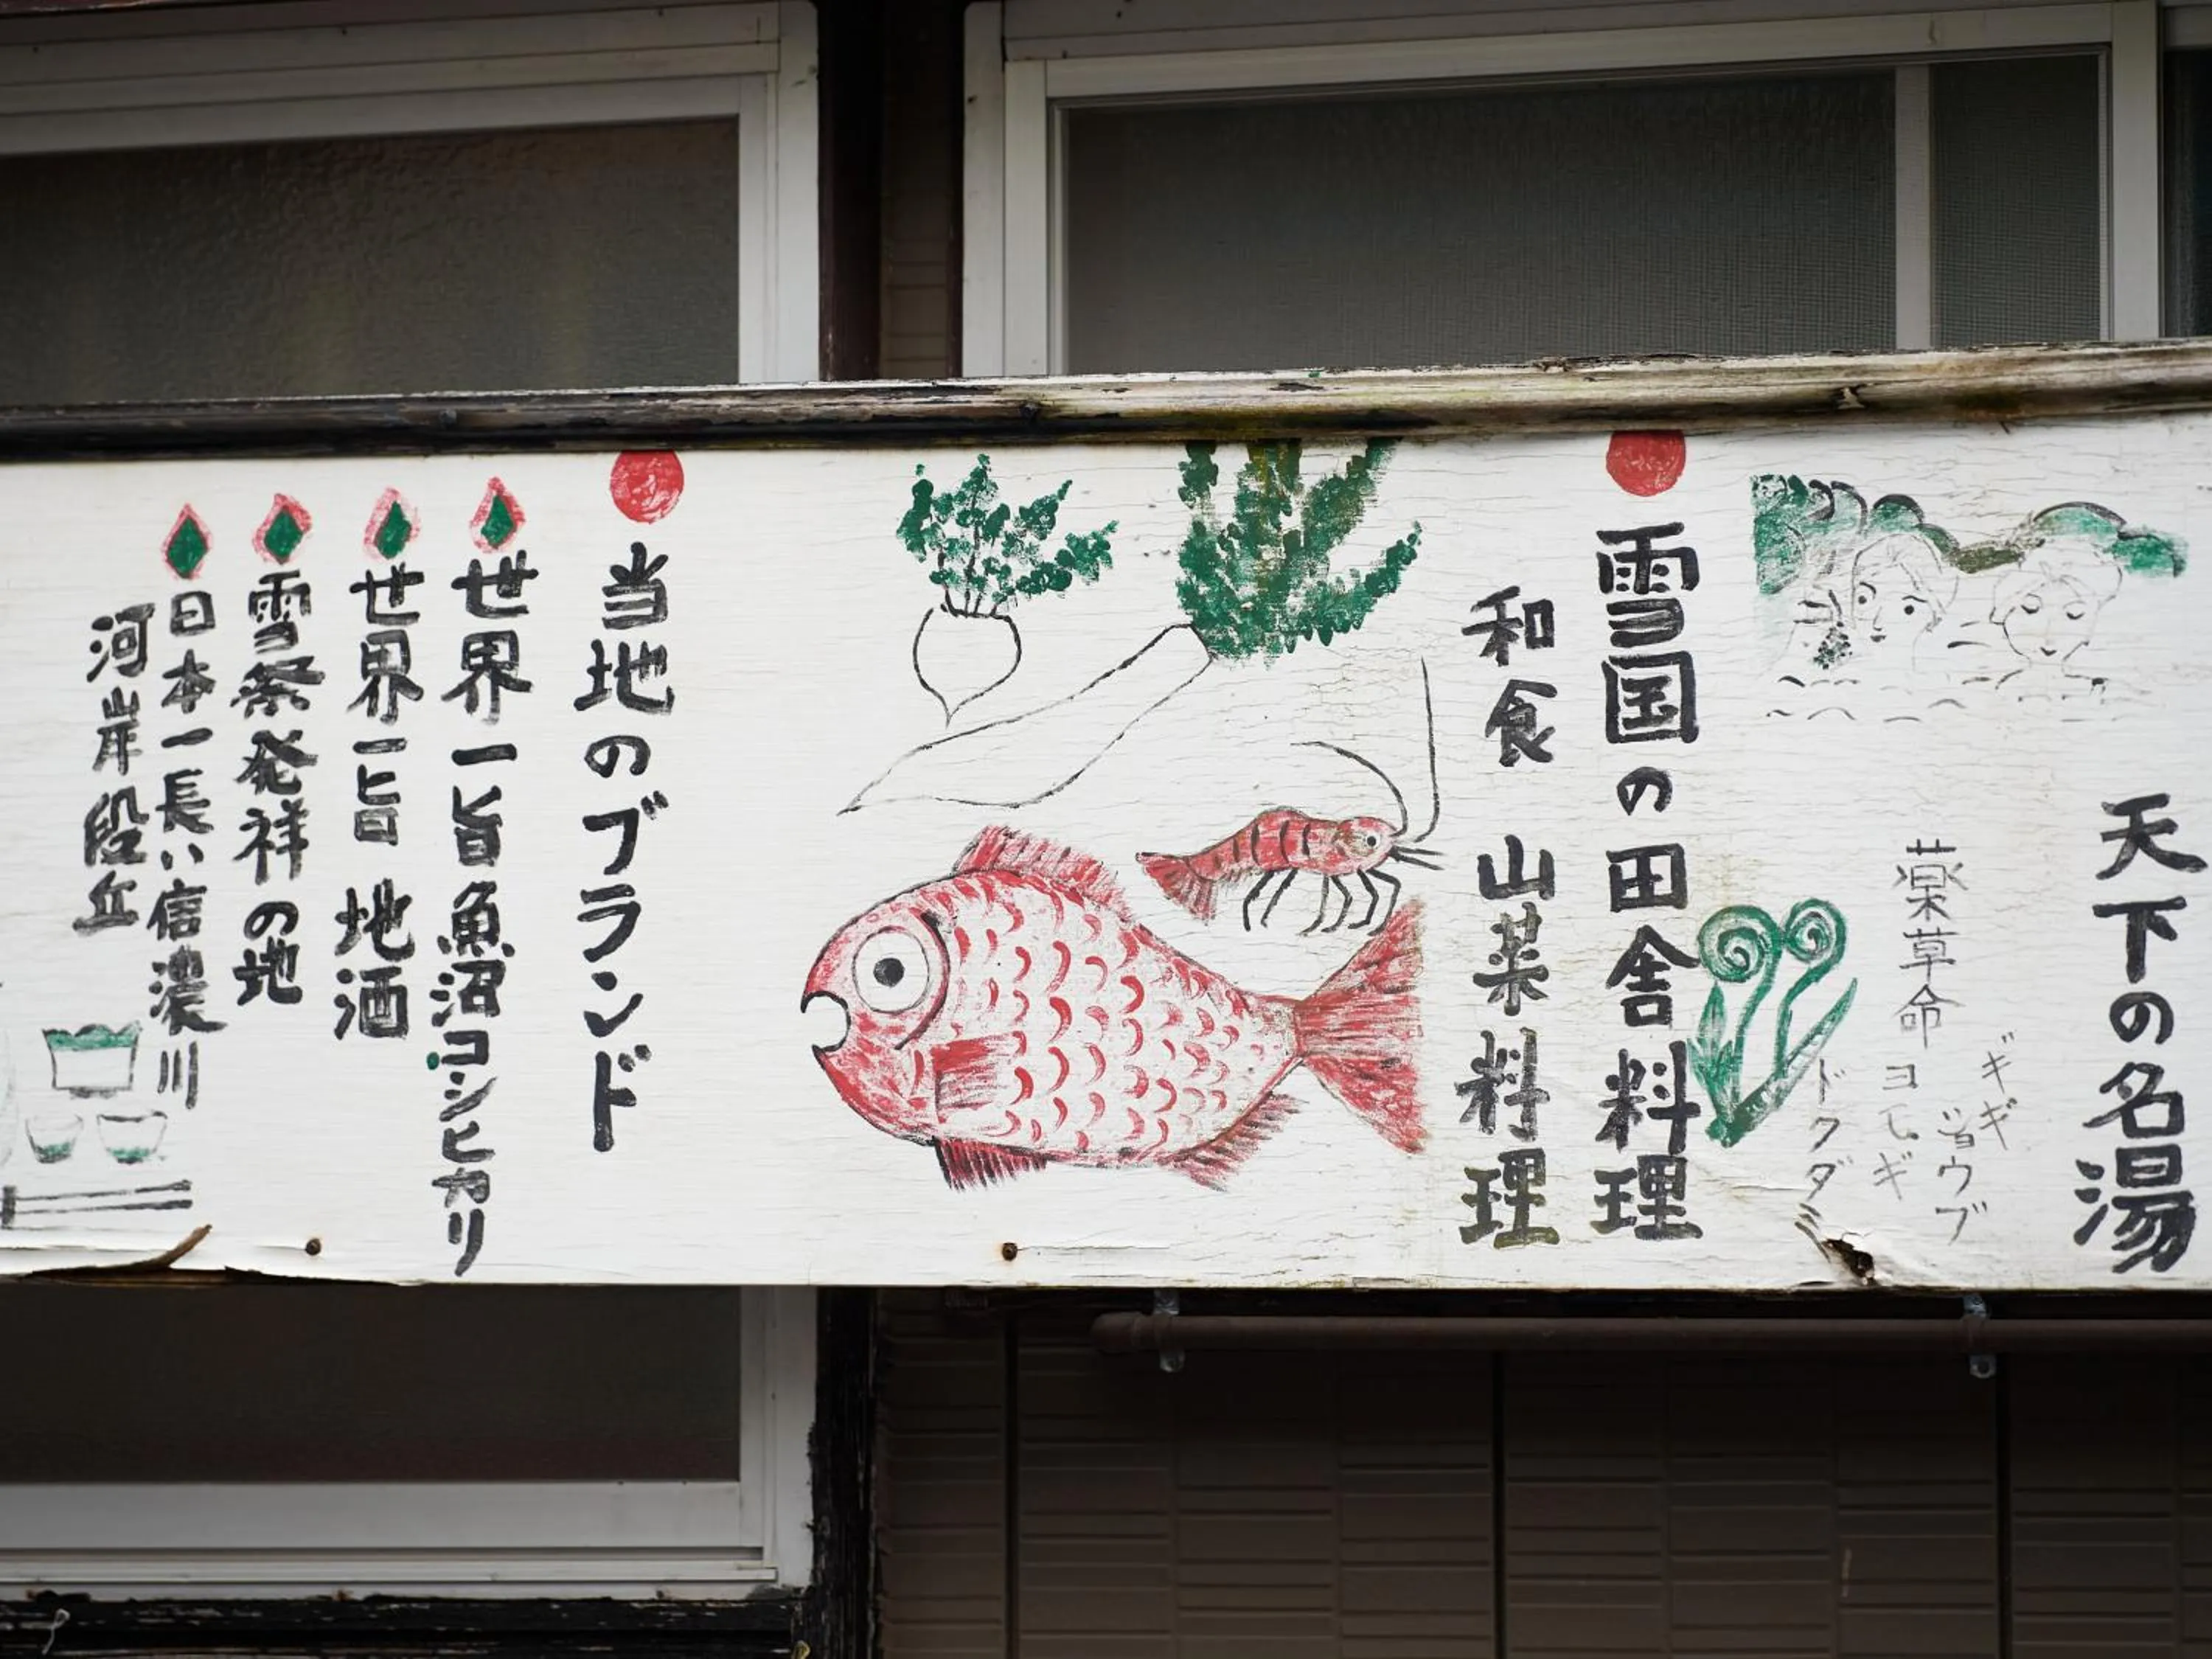 天下の名湯
薬草命
ギギ
ジョウブ
ヨモギ
ドクダミ
雪国の田舎料理
和食 山菜料理
当地のブランド
世界一旨魚沼コシヒカリ
世界一旨 地酒
雪祭発祥の地
日本一長い信濃川
河岸段丘